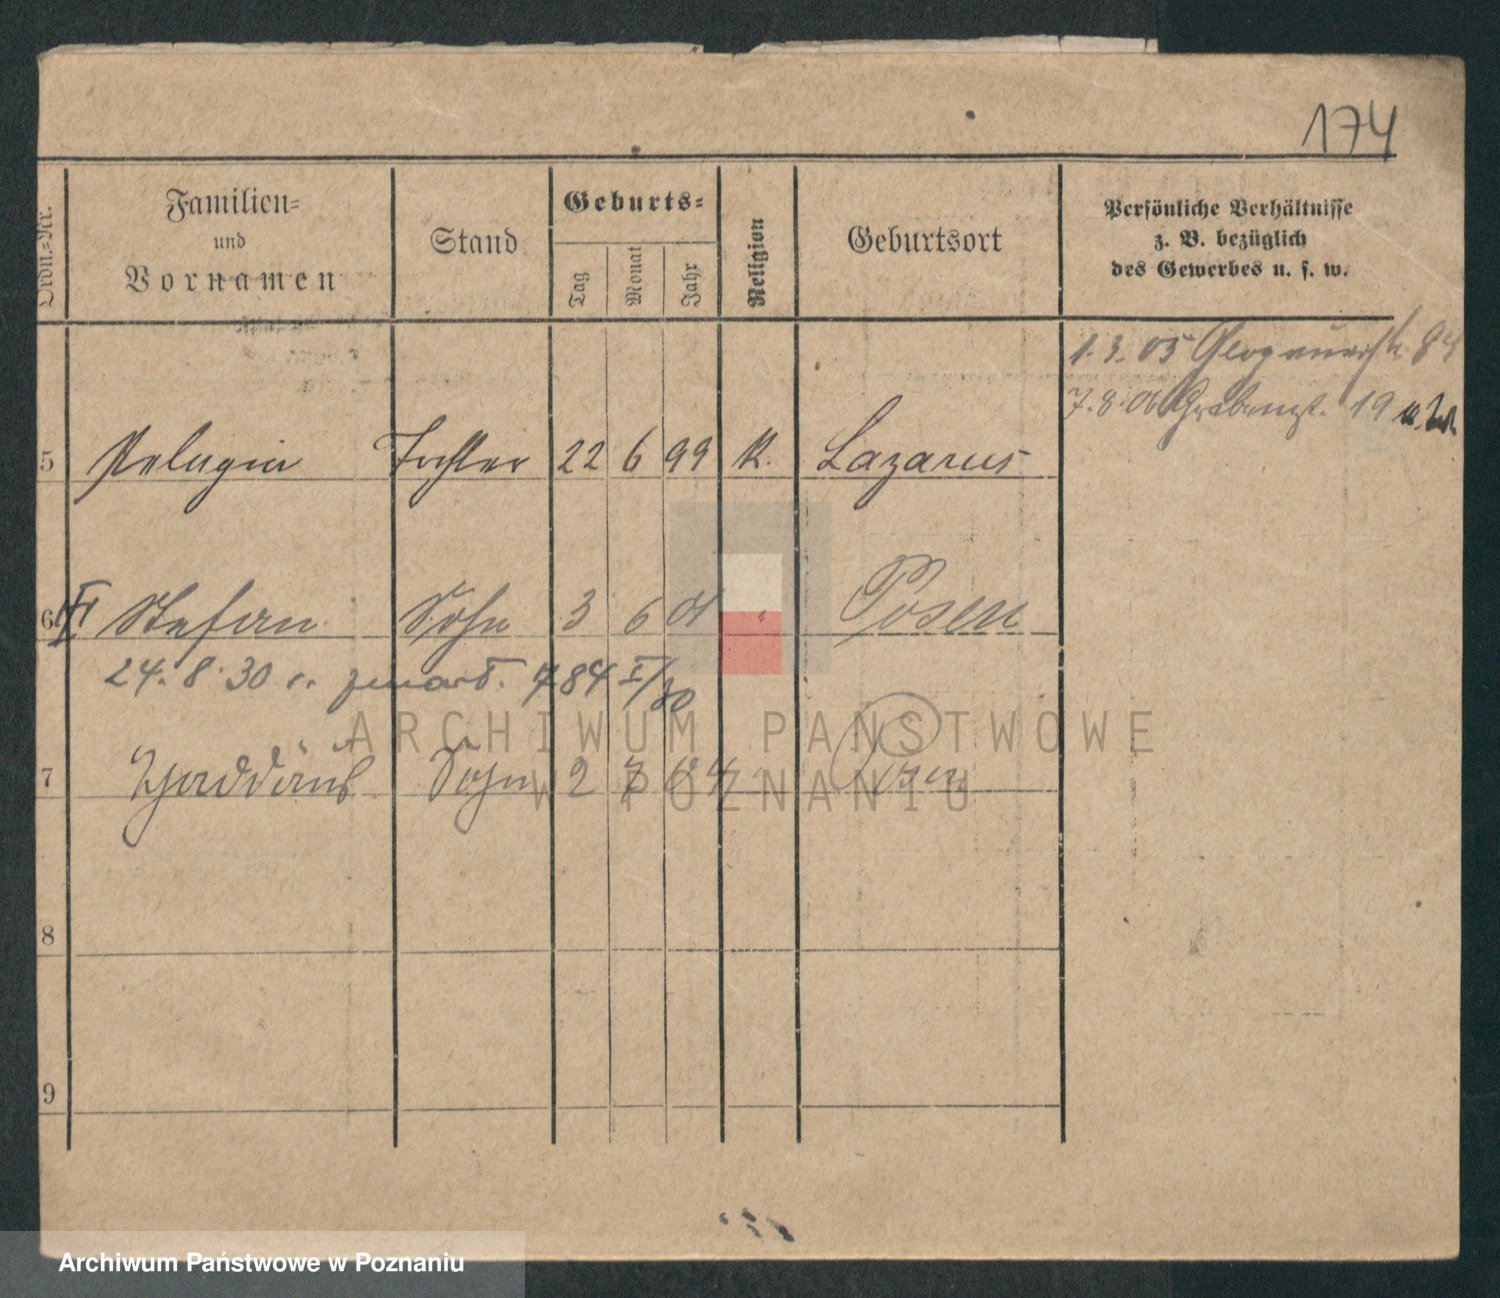 174
Ordn.-Nr.
Familien-
und
Vornamen
Stand
Geburts-
Tag
Monat
Jahr
Religion
Geburtsort
Persönliche Verhältnisse
z. B. bezüglich
des Gewerbes u. s. w.
1.3.05 Glogauerstr. 84
7.8.06 Grabenst. 19
5 Pelagia Tochter 22 6 99 K. Lazarus
6 Stefan Sohn 3 6 01 " Posen
24. 8. 30 r. zmarł. 784 I/30
7 Thaddäus Sohn 2 7 04 Posen
8
9
ARCHIWUM PAŃSTWOWE
W POZNANIU
Archiwum Państwowe w Poznaniu